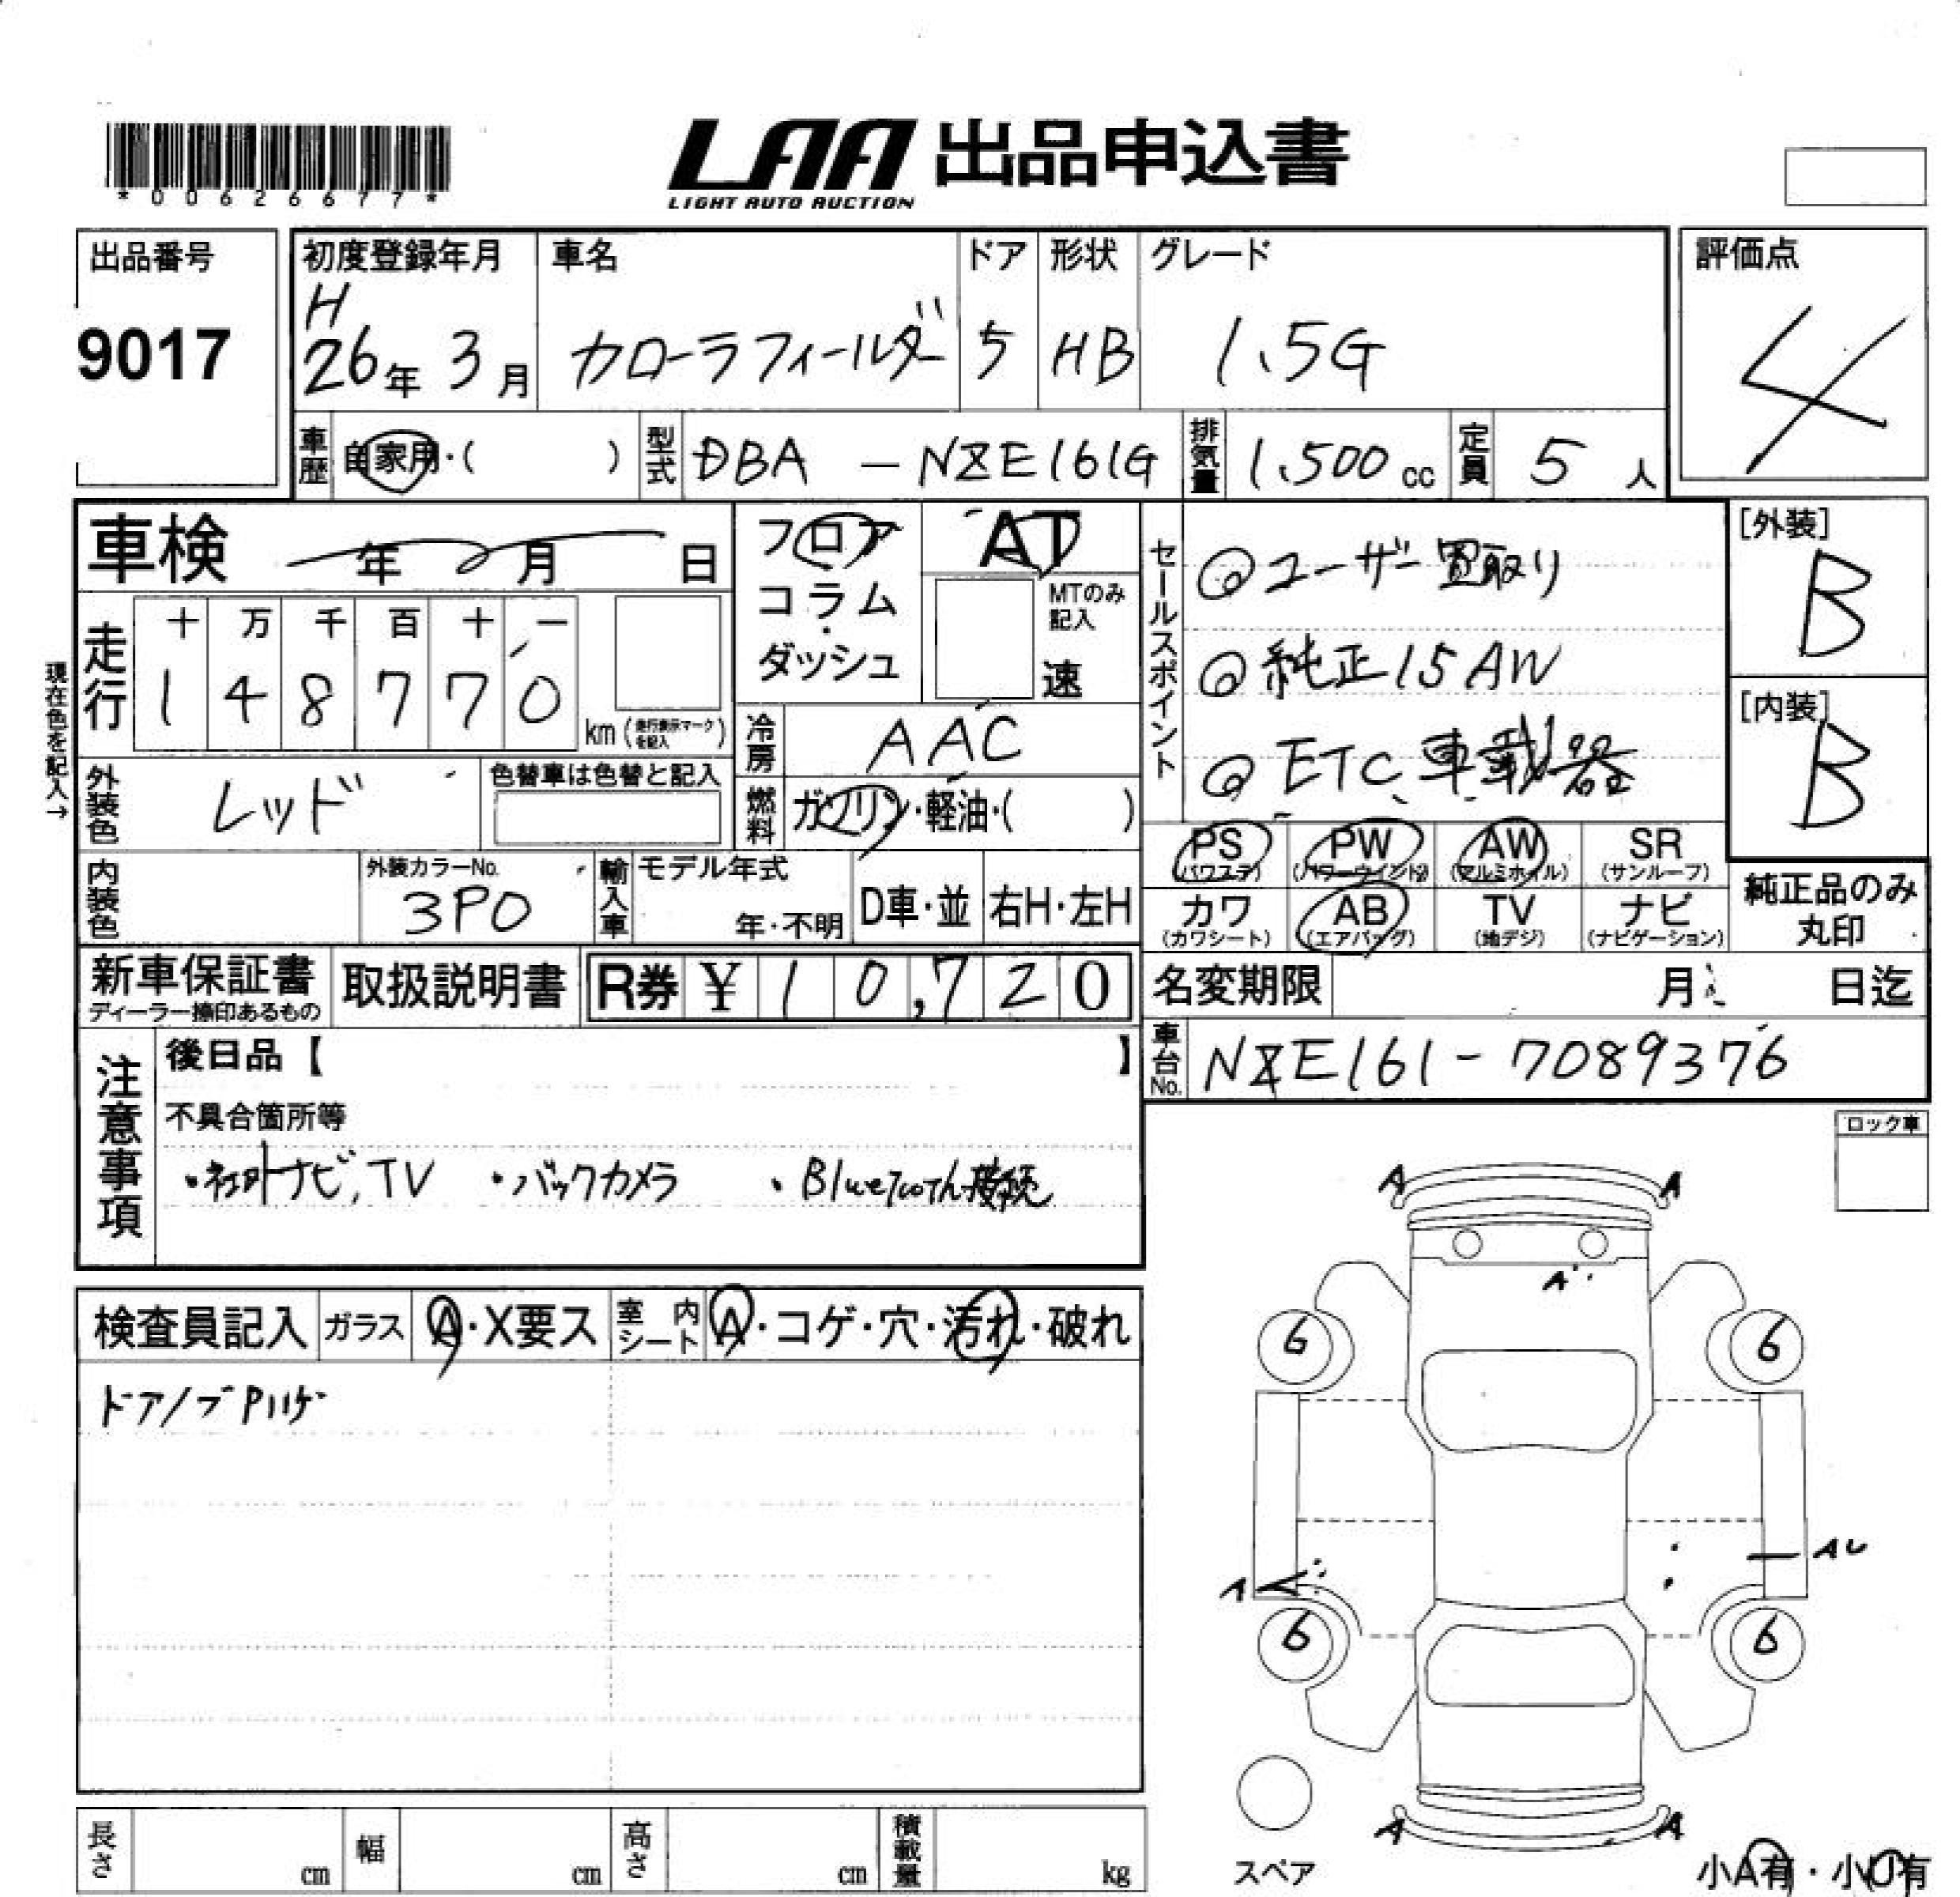 *00626677*
LAA 出品申込書
LIGHT AUTO AUCTION
出品番号
9017
初度登録年月 車名 ドア 形状 グレード
H
26年 3月 カローラフィールダー 5 HB 1.5G
評価点
4
車歴 自家用・( ) 型式 DBA - NZE161G 排気量 1,500cc 定員 5人
車検 年 月 日
フロア・コラム・ダッシュ
AT
MTのみ記入
速
セールスポイント
◎ユーザー買取り
◎純正15AW
◎ETC車載器
[外装]
B
[内装]
B
現在色を記入→
走行 十 万 千 百 十 一
1 4 8 7 7 0 km (走行表示マークを記入)
冷房 AAC
外装色 レッド 色替車は色替と記入
燃料 ガソリン・軽油・( )
PS (パワステ) PW (パワーウインドウ) AW (アルミホイル) SR (サンルーフ)
カワ (カワシート) AB (エアバッグ) TV (地デジ) ナビ (ナビゲーション)
純正品のみ
丸印
内装色 外装カラーNo. 3P0 輸入車 モデル年式 年・不明 D車・並 右H・左H
新車保証書 ディーラー捺印あるもの 取扱説明書 R券 ¥ 10,720
名変期限 月 日迄
車台No. NZE161-7089376
注意事項
後日品【 】
不具合箇所等
・社外ナビ,TV ・バックカメラ ・BlueTooth接続
ロック車
A A
A
検査員記入 ガラス A・X要ス 室内シート A・コゲ・穴・汚れ・破れ
ドアノブPハゲ
6 6
A AU
6 6
A A
スペア
小A有・小U有
長さ cm 幅 cm 高さ cm 積載量 kg